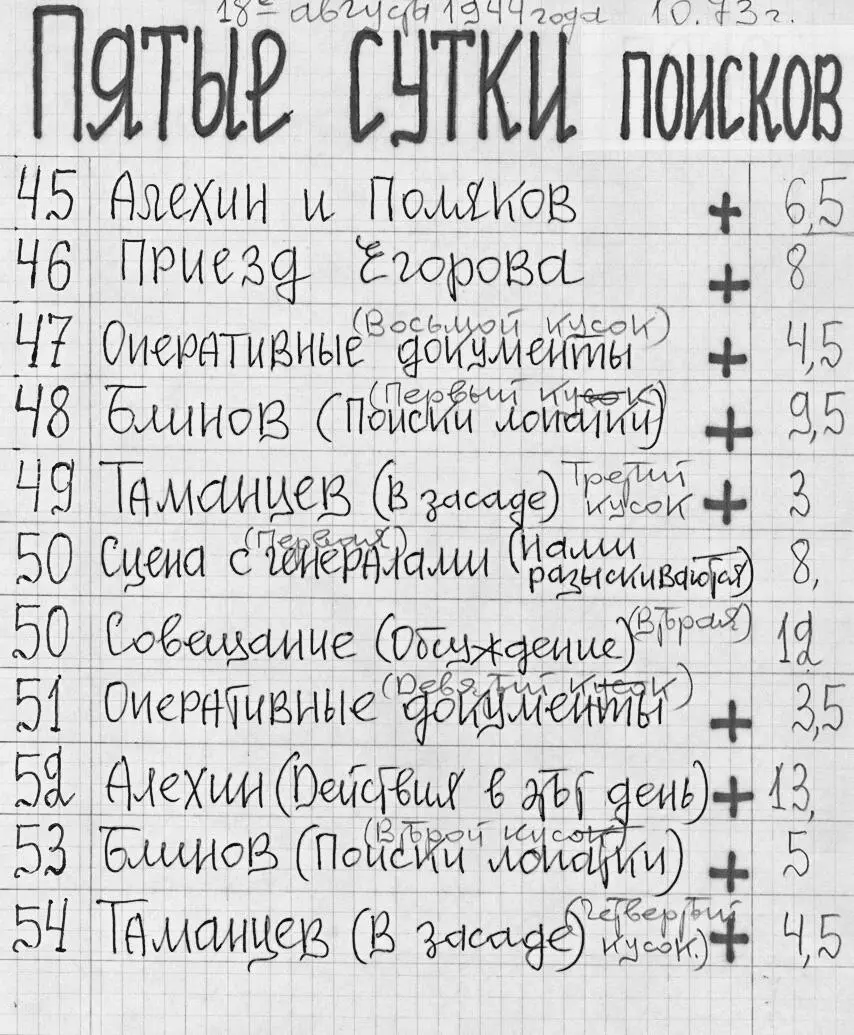 18е августа 1944 года 10.73 г.
Пятые сутки поисков
45 Алехин и Поляков + 6,5
46 Приезд Егорова + 8
(Восьмой кусок)
47 Оперативные документы + 4,5
(Первый кусок)
48 Блинов (Поиски лопатки) + 9,5
49 Таманцев (В засаде) Третий кусок + 3
(Первая)
50 Сцена с генералами (Нами разыскиваются) 8,
50 Совещание (Обсуждение) (Вторая) 12
(Девятый кусок)
51 Оперативные документы + 3,5
52 Алехин (Действия в этот день) + 13,
(Второй кусок)
53 Блинов (Поиски лопатки) + 5
54 Таманцев (В засаде) (Четвертый кусок.) + 4,5